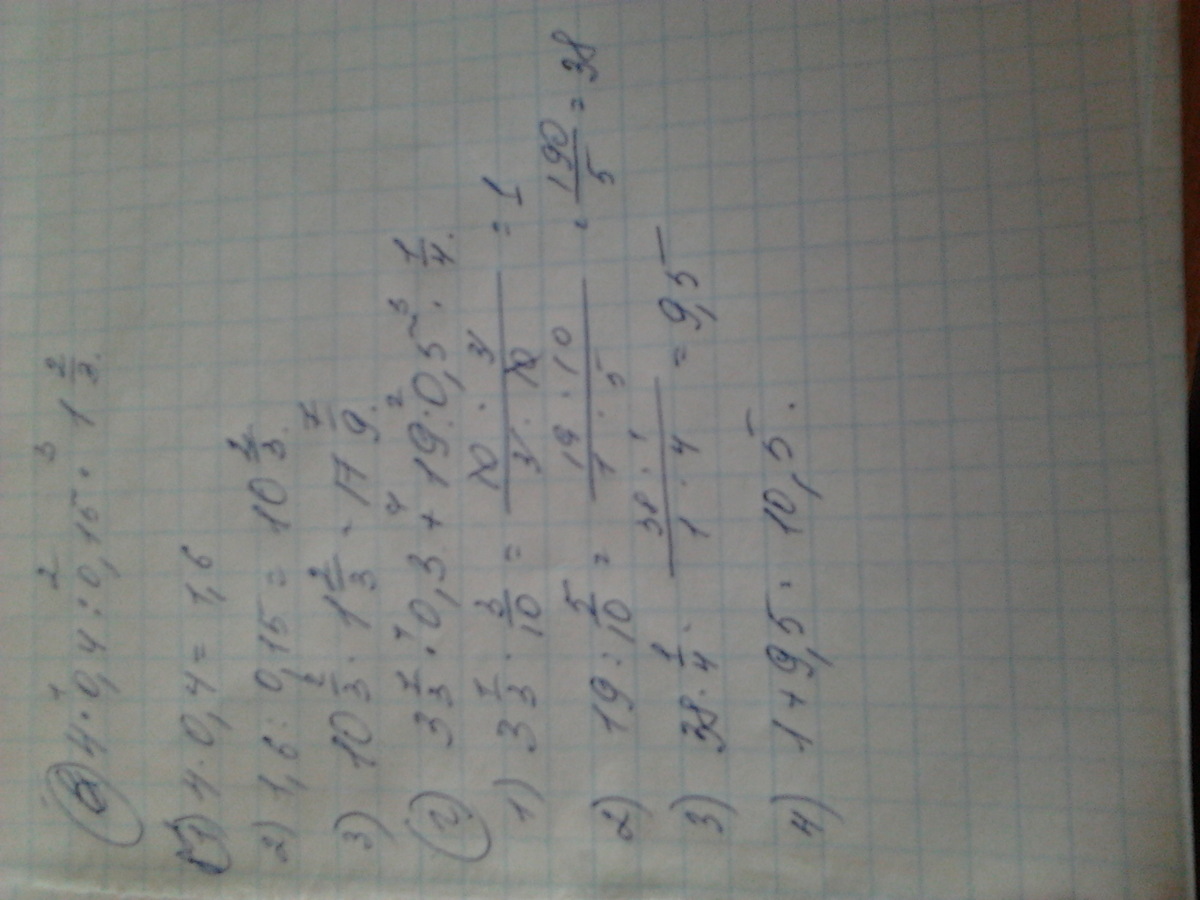 в) 4 · 0,4 : 0,15 · 1 2/3.
1) 4 · 0,4 = 1,6
2) 1,6 : 0,15 = 10 2/3.
3) 10 2/3 · 1 2/3 = 17 7/9.
г) 3 1/3 · 0,3 + 19 : 0,5 · 1/4.
1) 3 1/3 · 3/10 = 10 · 3 / 3 · 10 = 1
2) 19 : 5/10 = 19 · 10 / 1 · 5 = 190/5 = 38
3) 38 · 1/4 = 38 · 1 / 1 · 4 = 9,5
4) 1 + 9,5 = 10,5.